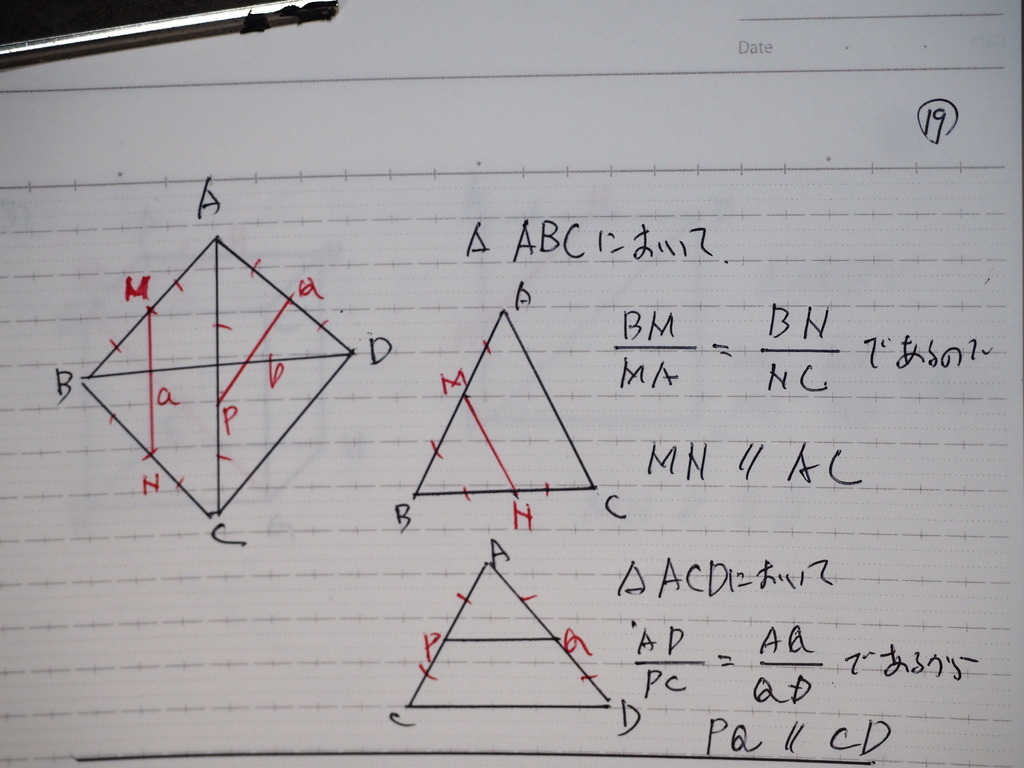 Date
⑲
A
M
Q
B
D
a
b
P
N
C
△ ABCにおいて.
A
M
B
N
C
BM/MA = BN/NC であるので
MN // AC
A
P
Q
C
D
△ ACDにおいて
AP/PC = AQ/QD であるから
PQ // CD